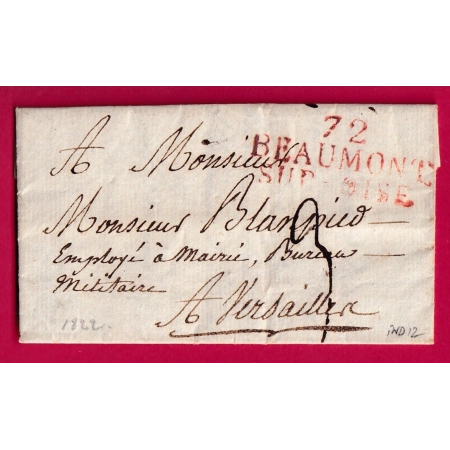 72
BEAUMONT
SUR OISE
A Monsieur
Monsieur Blanpied
Employé à Mairie, Bureau
Militaire
A Versailles
3
1822.
IND 12